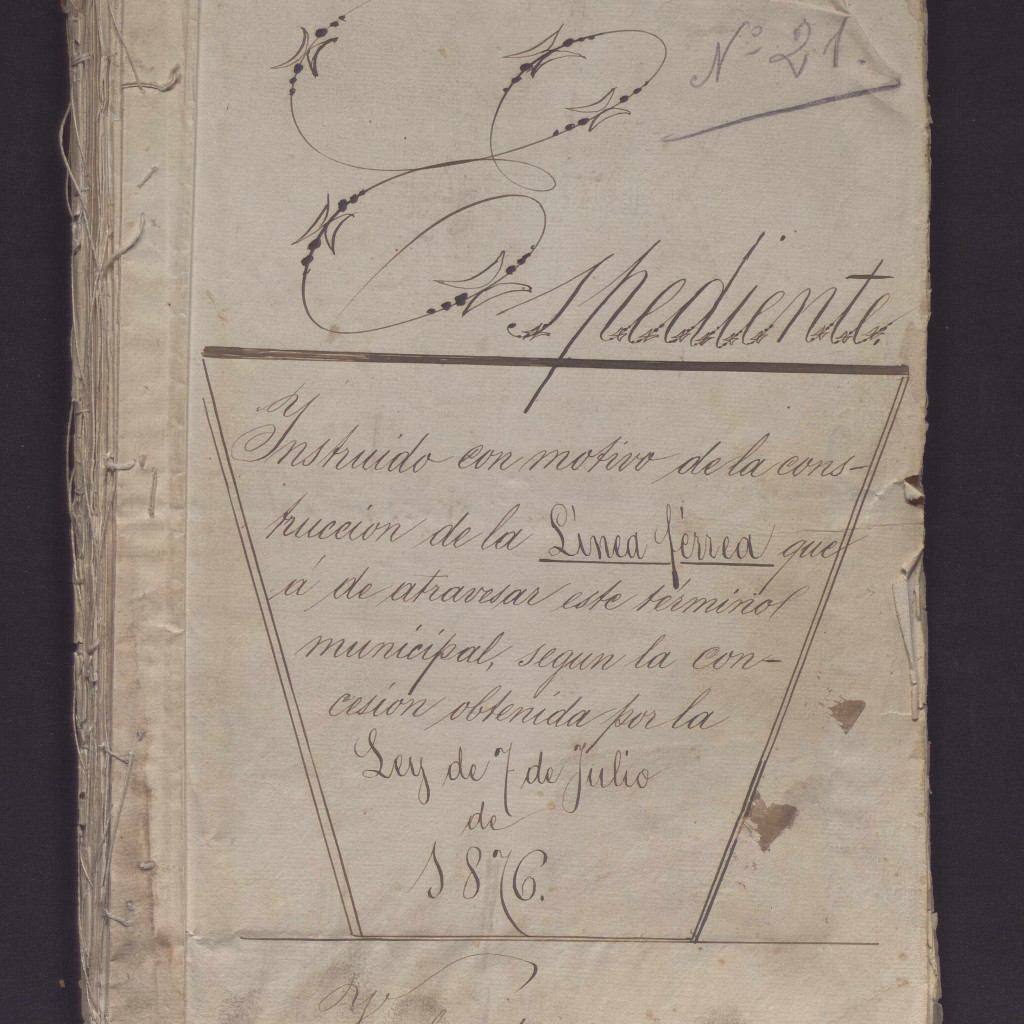 Nº 21.
Espediente.
Instruido con motivo de la cons-
truccion de la Línea férrea que
á de atravesar este término
municipal, segun la con-
cesión obtenida por la
Ley de 7 de Julio
de
1876.